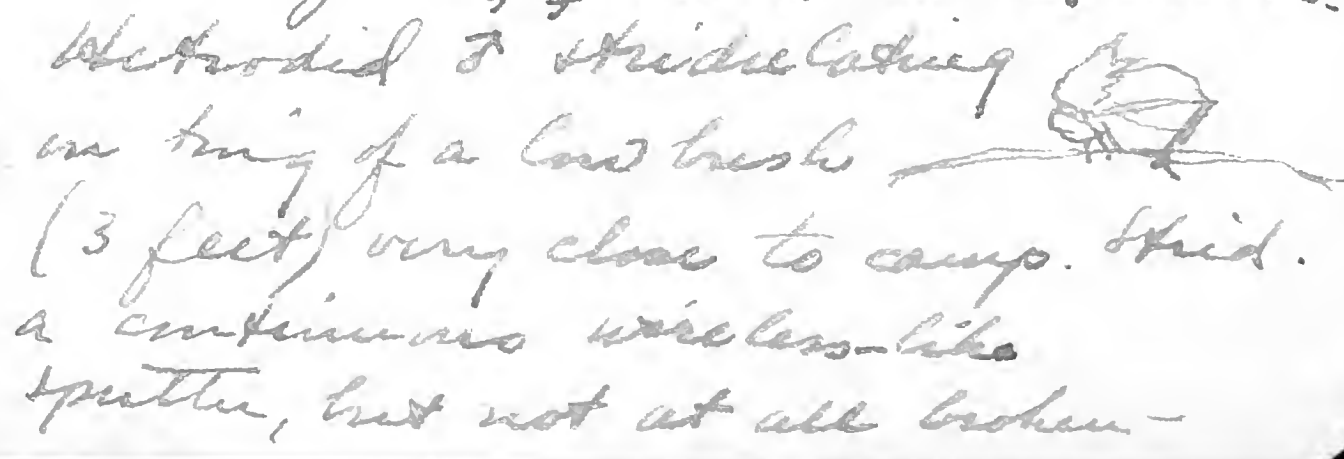 Hetrodid ♂ stridulating
on twig of a low bush
(3 feet) very close to camp. Strid.
a continuous wireless-like
sputter, but not at all broken—